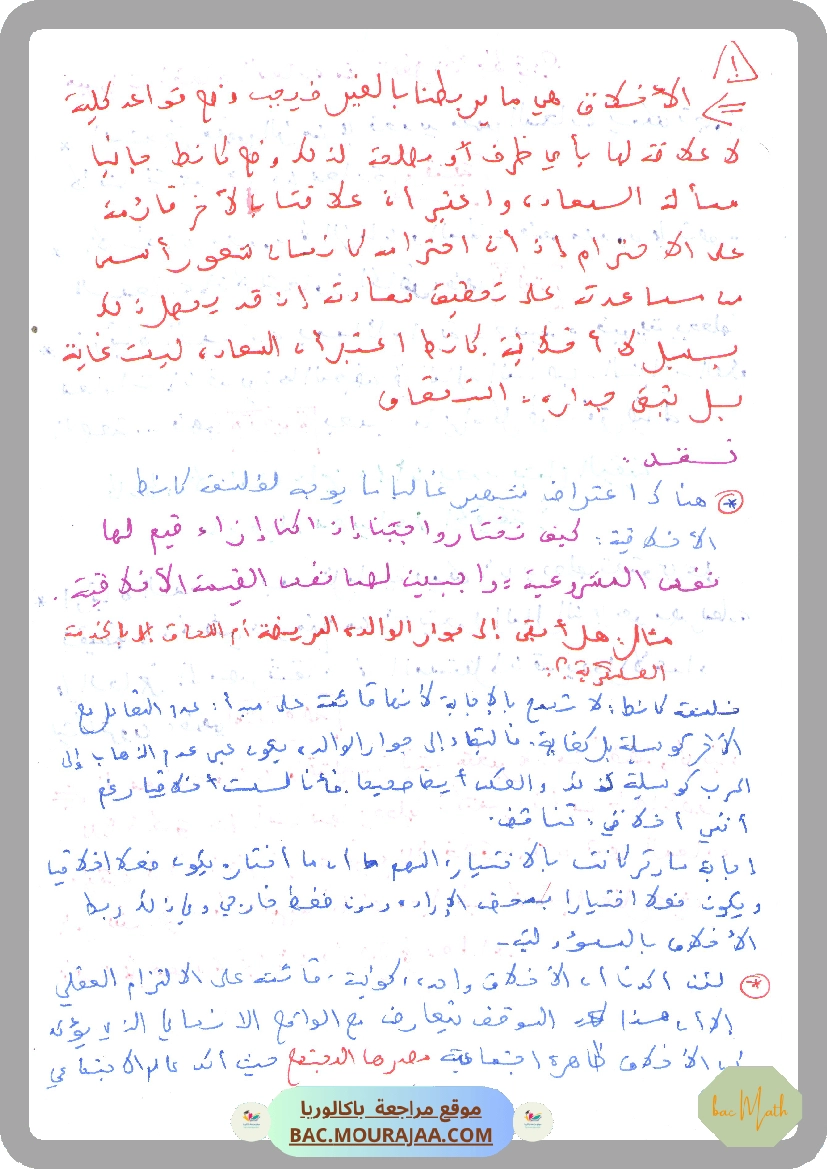 الأخلاق هي ما يربطنا بالغير فيجب وضع قواعد كلية
لا علاقة لها بأي ظرف أو مصلحة لذلك وضع كانط جانبا
مسألة السعادة واعتبر أن علاقتنا بالآخر قائمة
على الاحترام إذ أن احترامه كإنسان شعور أسمى
من مساعدته على تحقيق سعادته إذ قد يفعل ذلك
بسبل لا أخلاقية. كانط اعتبر أن السعادة ليست غاية
بل تبقى جدارة: استحقاق
نقد:
هناك اعتراض شهير غالبا ما يوجه لفلسفة كانط
الأخلاقية: كيف نختار واجبنا إذا كنا إزاء قيم لها
نفس المشروعية = واجبين لهما نفس القيمة الأخلاقية.
مثال: هل أبقى إلى جوار الوالدة المريضة أم التحاق بالخدمة
العسكرية؟
فلسفة كانط: لا تسمح بالإجابة لأنها قائمة على مبدأ: عدم التعامل مع
الآخر كوسيلة بل كغاية. فالبقاء إلى جوار الوالدة يكون عبر عدم الذهاب إلى
الحرب كوسيلة لذلك والعكس أيضا صحيحا. فأنا لست أخلاقيا رغم
أنني أخلاقي: تناقض.
إجابة سارتر كانت بالاختيار: المهم أن ما أختاره يكون فعلا أخلاقيا
ويكون فعلا اختياريا بمحض الإرادة دون ضغط خارجي وفي ذلك ربط
الأخلاق بالمسؤولية.
لئن أكدنا أن الأخلاق واحدة، كونية، قائمة على الالتزام العقلي
إلا أن هذا الموقف يتعارض مع الواقع الإنساني الذي يؤكد
أن الأخلاق ظاهرة اجتماعية مصدرها المجتمع حيث أكد عالم الاجتماعي
موقع مراجعة باكالوريا
BAC.MOURAJAA.COM
bacMath